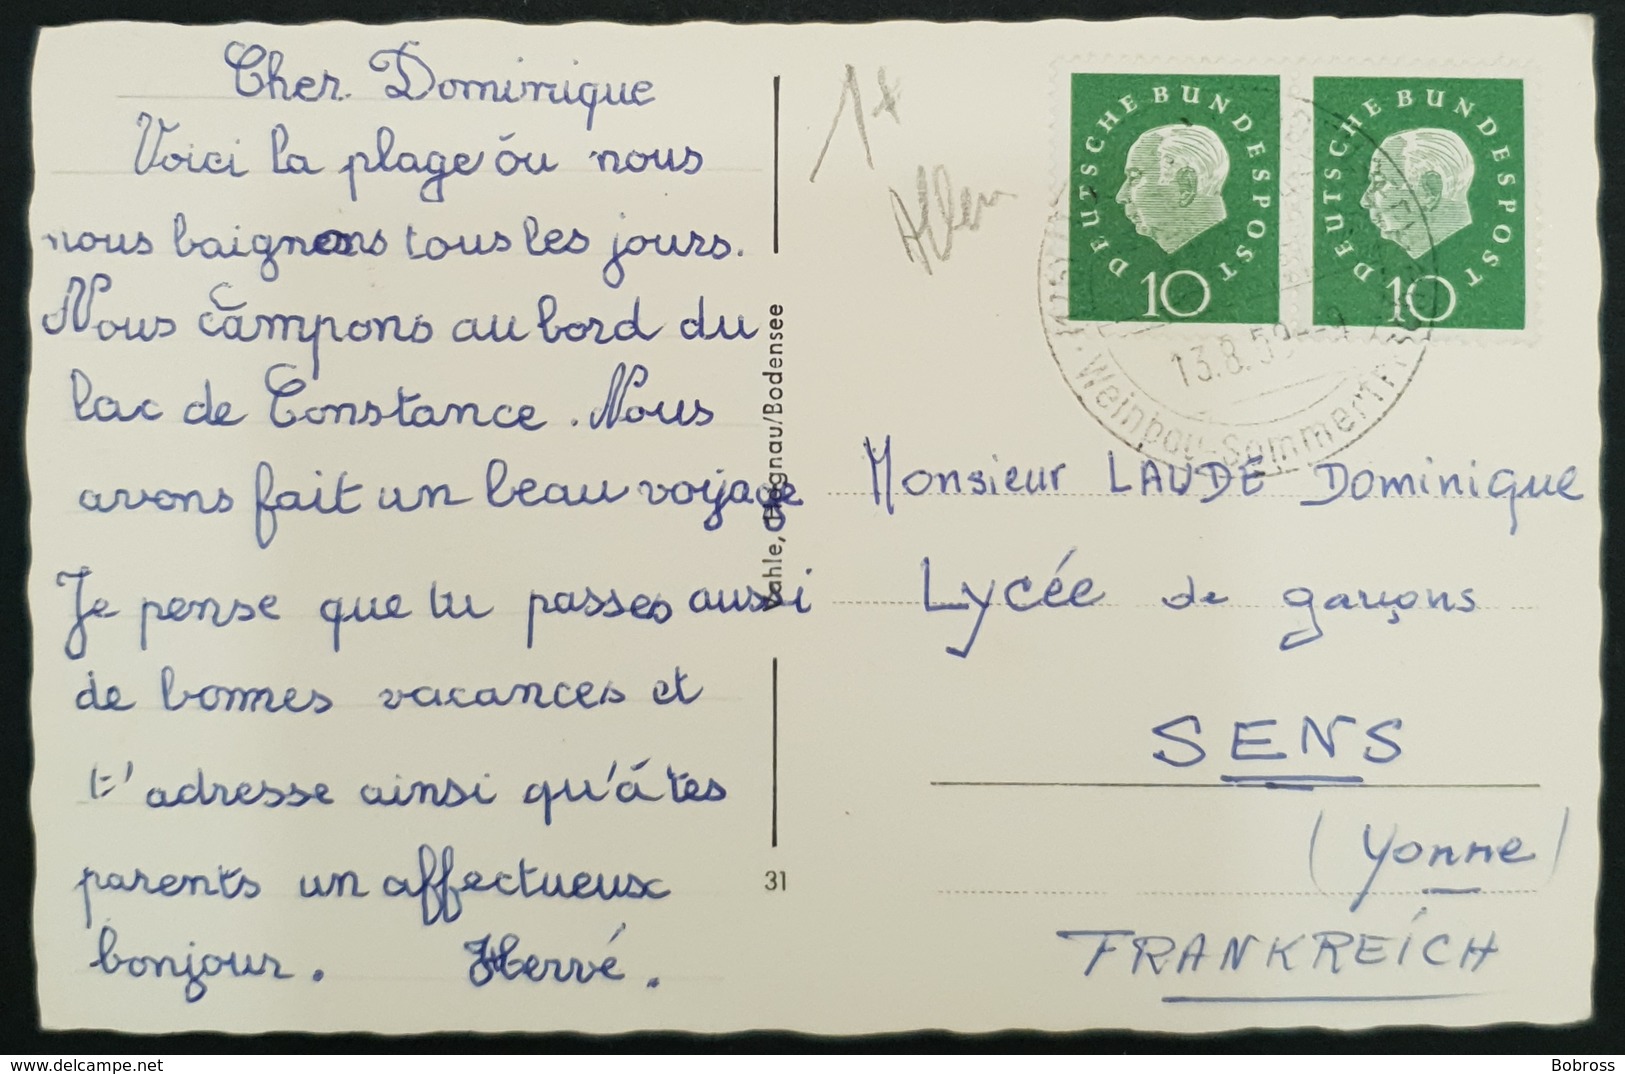 Cher Dominique
Voici la plage óu nous
nous baignons tous les jours.
Nous campons au bord du
lac de Constance. Nous
avons fait un beau voyage
Je pense que tu passes aussi
de bonnes vacances et
t'adresse ainsi qu'á tes
parents un affectueux
bonjour. Hervé.
Hagnau/Bodensee
31
1+
Allem
DEUTSCHE BUNDESPOST
10
DEUTSCHE BUNDESPOST
10
13.8.59
Weinbau-Sommerfr
Monsieur LAUDE Dominique
Lycée de garçons
SENS
(Yonne)
FRANKREICH
Bobross